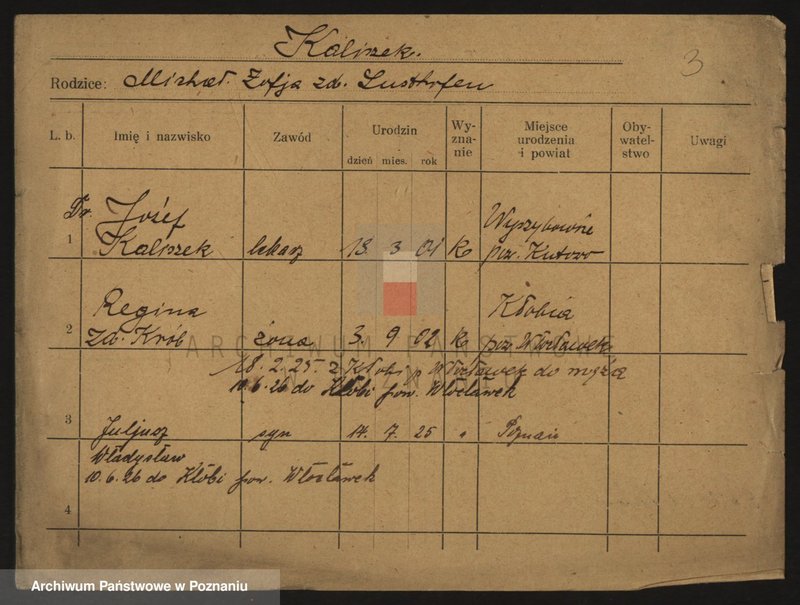 Kaliszek.
3
Rodzice: Michał. Zofja zd. Lusthofen
L. b. Imię i nazwisko Zawód Urodzin Wy-zna-nie Miejsce urodzenia i powiat Oby-watel-stwo Uwagi
dzień mies. rok
Dr. Józef
1 Kaliszek lekarz 13 3 01 k pow. Kutno
Regina Kłobia
2 zd. Król żona 3. 9 02 k pow. Włocławek
ARCHIWUM PAŃSTWOWE
18. 2. 25. z Kłobi p. Włocławek do męża
10. 6. 26 do Kłobi pow. Włocławek
3 Juljusz syn 14. 7. 25 " Poznań
Władysław
10. 6. 26 do Kłobi pow. Włocławek
4
Archiwum Państwowe w Poznaniu